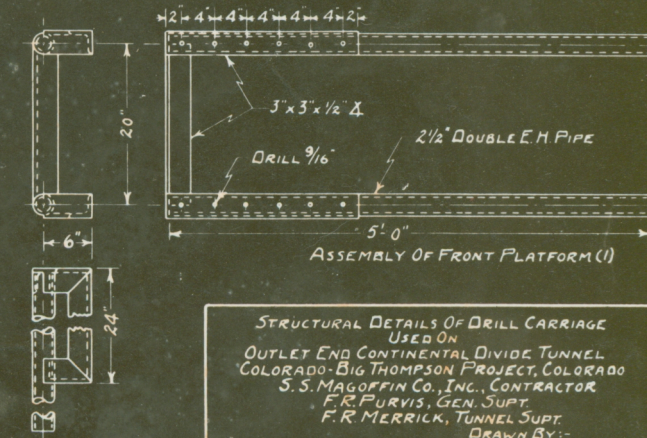 2" 4" 4" 4" 4" 4" 2"
20"
3"x3"x½" ∆
2½" DOUBLE E.H. PIPE
DRILL 9/16"
6"
5'-0"
ASSEMBLY OF FRONT PLATFORM (1)
24"
STRUCTURAL DETAILS OF DRILL CARRIAGE
USED ON
OUTLET END CONTINENTAL DIVIDE TUNNEL
COLORADO-BIG THOMPSON PROJECT, COLORADO
S.S. MAGOFFIN CO., INC., CONTRACTOR
F.R. PURVIS, GEN. SUPT.
F.R. MERRICK, TUNNEL SUPT.
DRAWN BY:-